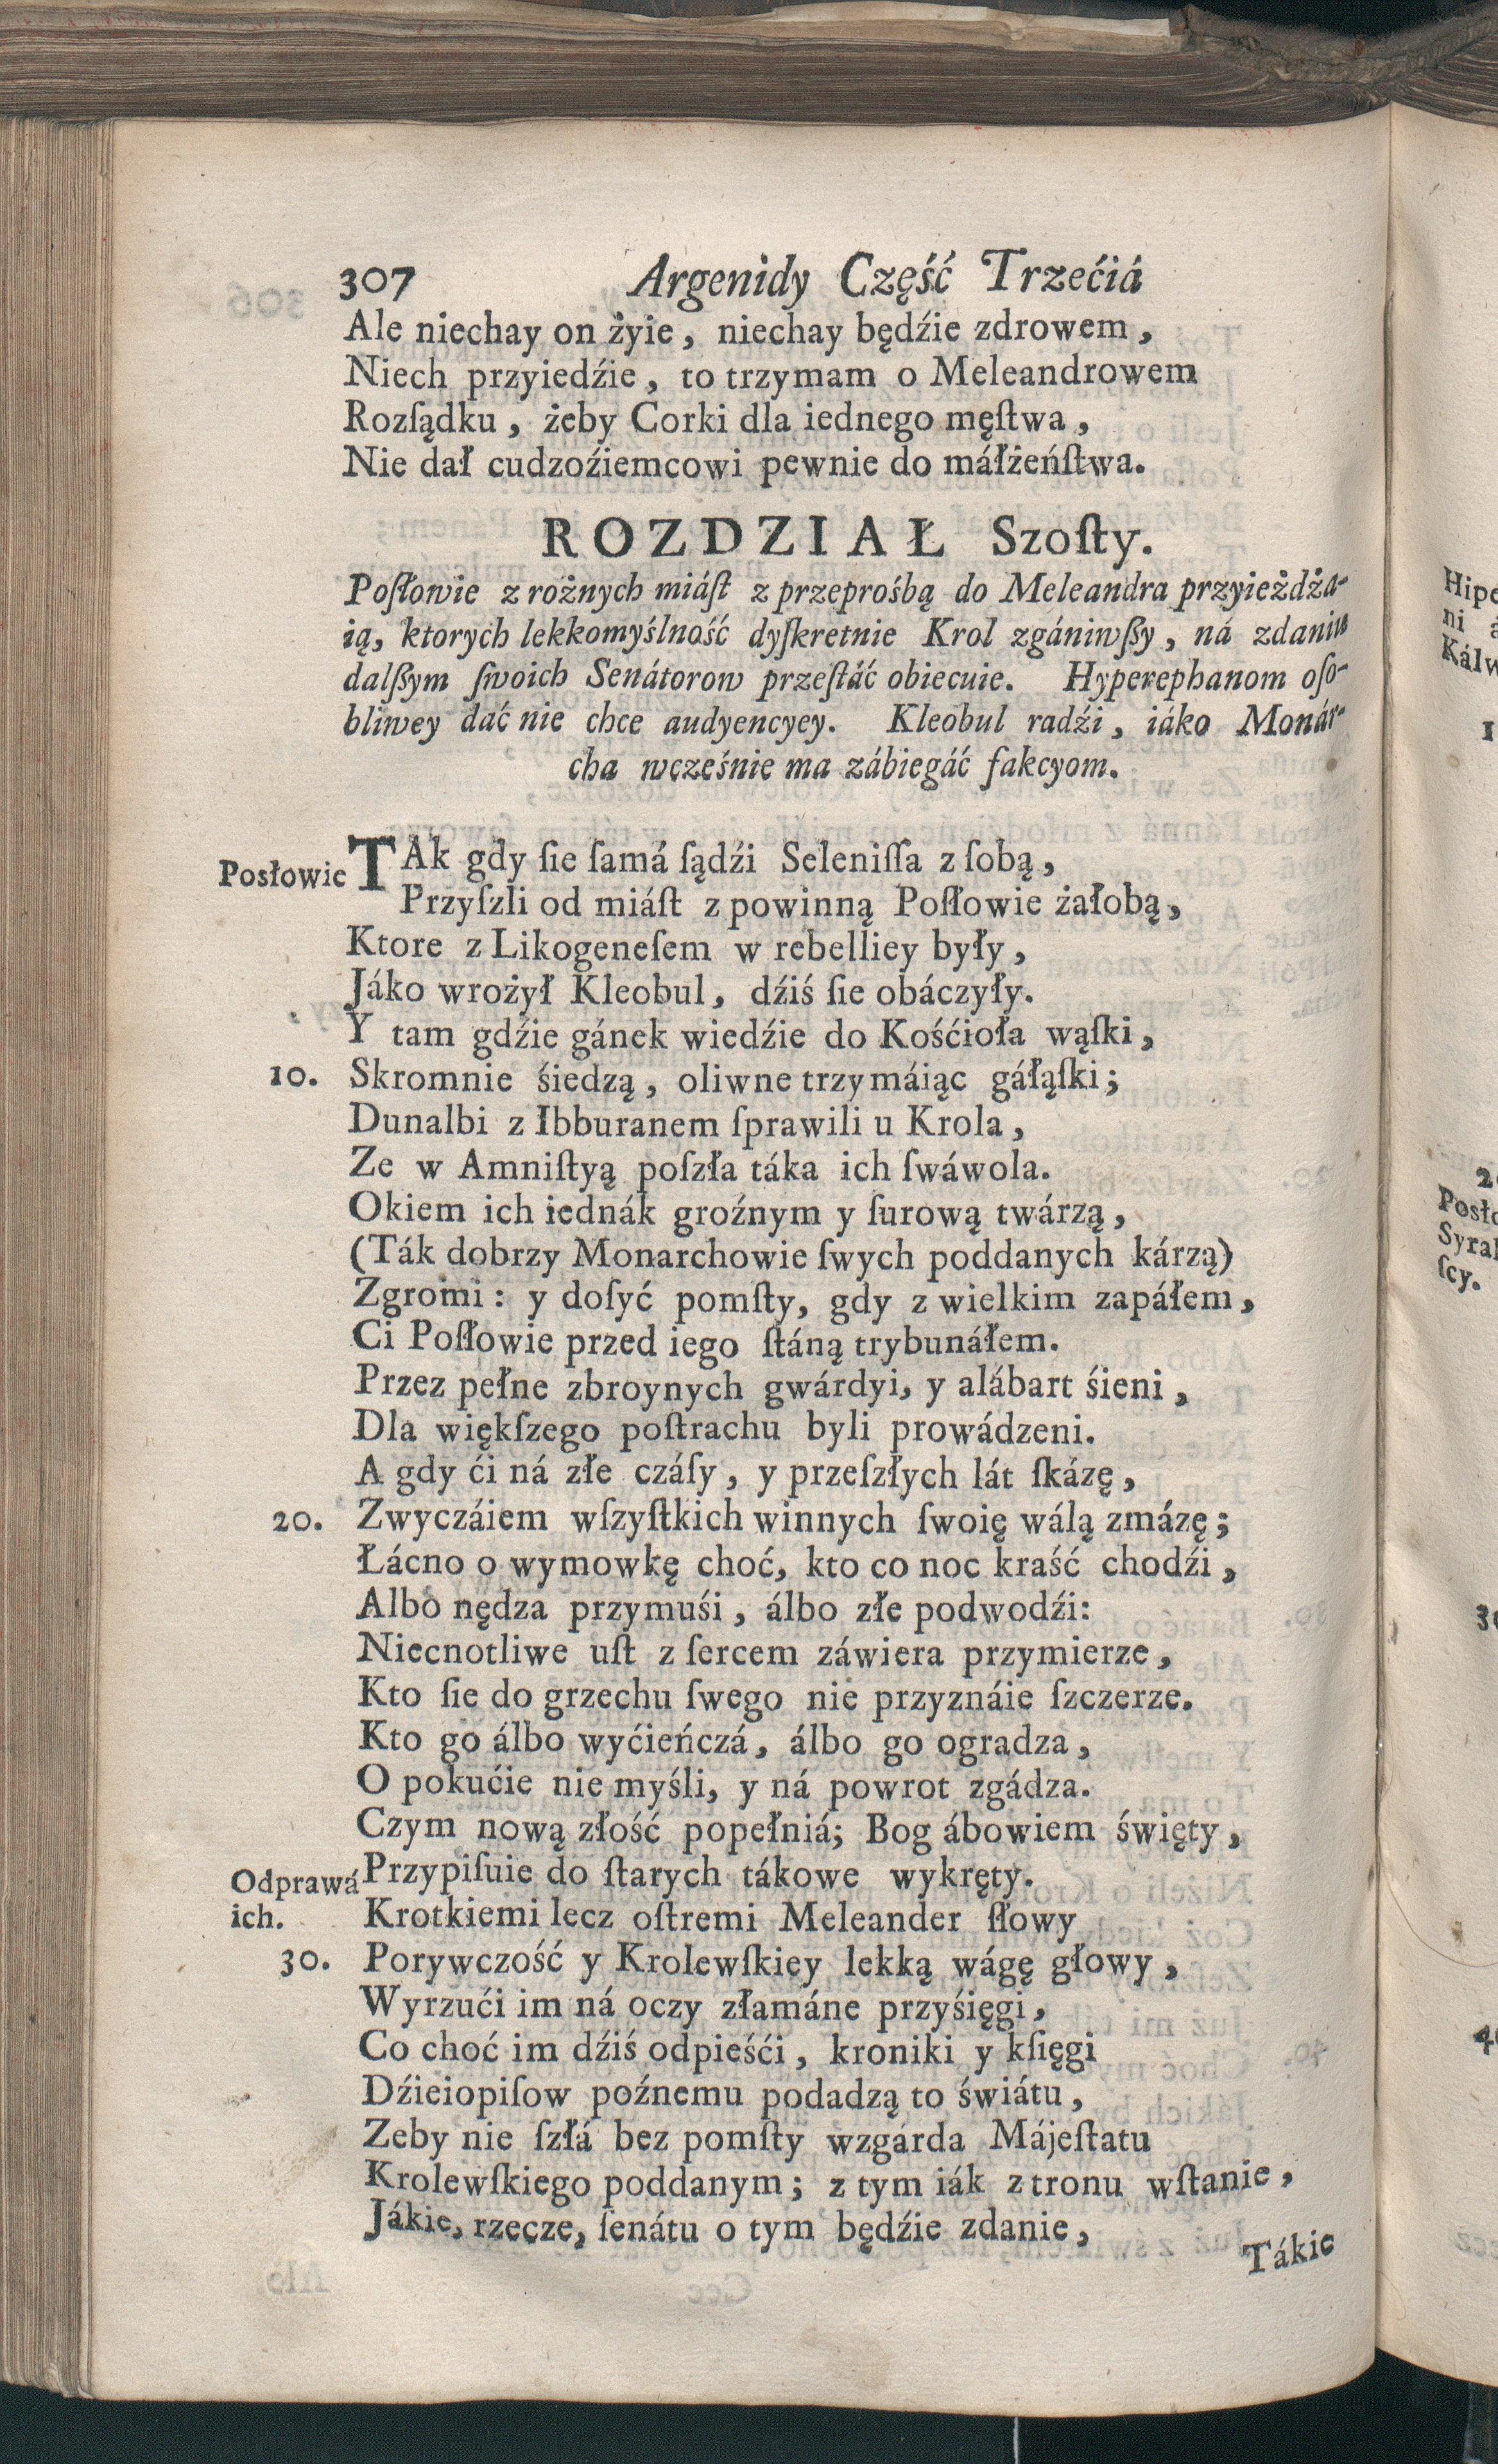 307 Argenidy Część Trzećiá
Ale niechay on żyie, niechay będźie zdrowem,
Niech przyiedźie, to trzymam o Meleandrowem
Rozſądku, żeby Corki dla iednego męſtwa,
Nie dał cudzoźiemcowi pewnie do máłżeńſtwa.
ROZDZIAŁ Szoſty.
Poſłowie z rożnych miáſt z przeprośbą do Meleandra przyieżdża-
ią, ktorych lekkomyślność dyſkretnie Krol zgániwſzy, ná zdaniu
dalſzym ſwoich Senátorow przeſtáć obiecuie. Hyperephanom oſo-
bliwey dać nie chce audyencyey. Kleobul radźi, iáko Monár-
cha wcześnie ma zábiegáć fakcyom.
Posłowie TAk gdy ſie ſamá ſądźi Seleniſſa z ſobą,
Przyſzli od miáſt z powinną Poſłowie żałobą,
Ktore z Likogeneſem w rebelliey były,
Jáko wrożył Kleobul, dźiś ſie obáczyły.
Y tam gdźie gánek wiedźie do Kośćioła wąſki,
10. Skromnie śiedzą, oliwne trzymáiąc gáłąſki;
Dunalbi z Ibburanem ſprawili u Krola,
Ze w Amniſtyą poſzła táka ich ſwáwola.
Okiem ich iednák groźnym y ſurową twárzą,
(Ták dobrzy Monarchowie ſwych poddanych kárzą)
Zgromi: y doſyć pomſty, gdy z wielkim zapáłem,
Ci Poſłowie przed iego ſtáną trybunáłem.
Przez pełne zbroynych gwárdyi, y alábart śieni,
Dla więkſzego poſtrachu byli prowádzeni.
A gdy ći ná złe czáſy, y przeſzłych lát ſkázę,
20. Zwyczáiem wſzyſtkich winnych ſwoię wálą zmázę;
Łácno o wymowkę choć, kto co noc kraść chodźi,
Albo nędza przymuśi, álbo złe podwodźi:
Niecnotliwe uſt z ſercem záwiera przymierze,
Kto ſie do grzechu ſwego nie przyznáie ſzczerze.
Kto go álbo wyćieńczá, álbo go ogradza,
O pokućie nie myśli, y ná powrot zgádza.
Czym nową złość popełniá; Bog ábowiem święty,
Odprawá Przypiſuie do ſtarych tákowe wykręty.
ich. Krotkiemi lecz oſtremi Meleander ſłowy
30. Porywczość y Krolewſkiey lekką wágę głowy,
Wyrzući im ná oczy złamáne przyśięgi,
Co choć im dźiś odpieśći, kroniki y kſięgi
Dźieiopiſow poźnemu podadzą to świátu,
Zeby nie ſzłá bez pomſty wzgárda Májeſtatu
Krolewſkiego poddanym; z tym iák z tronu wſtanie,
Jákie, rzecze, ſenátu o tym będźie zdanie,
Tákie
Hipe
ni á
Kálw
1
2
Posło
Syra
ſcy.
3
4